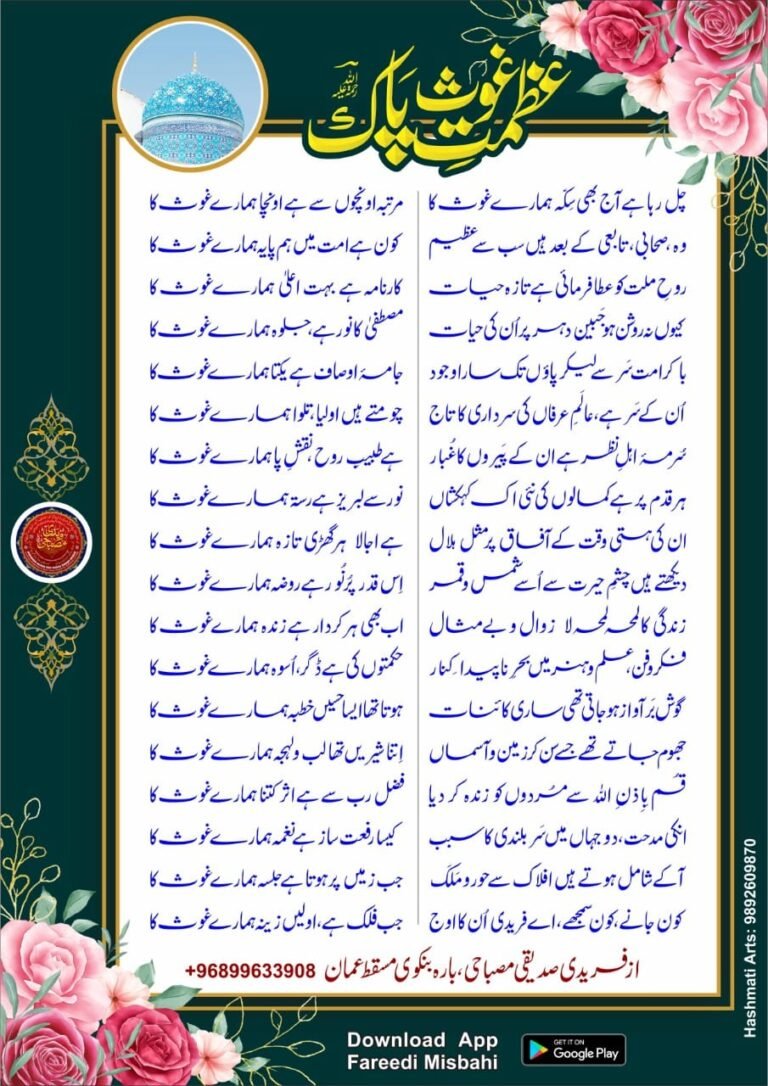 عظمتِ غوث پاک
رحمۃ اللہ علیہ
چل رہا ہے آج بھی سِکّہ ہمارے غوث کا مرتبہ اونچوں سے ہے اونچا ہمارے غوث کا
وہ، صحابی، تابعی کے بعد ہیں سب سے عظیم کون ہے امت میں ہم پایہ ہمارے غوث کا
روحِ ملت کو عطا فرمائی ہے تازہ حیات کارنامہ ہے بہت اعلیٰ ہمارے غوث کا
کیوں نہ روشن ہو جَبینِ دہر پر اُن کی حیات مصطفیٰ کا نور ہے، جلوہ ہمارے غوث کا
با کرامت سَر سے لیکر پاؤں تک سارا وجود جامۂ اوصاف ہے یکتا ہمارے غوث کا
اُن کے سَر ہے، عالَمِ عرفاں کی سرداری کا تاج چومتے ہیں اولیا، تلوا ہمارے غوث کا
سُرمۂ اہلِ نظر ہے ان کے پَیروں کا غُبار ہے طبیبِ روح، نقشِ پا ہمارے غوث کا
ہر قدم پر ہے کمالوں کی نئی اک کہکشاں نور سے لبریز ہے رستہ ہمارے غوث کا
ان کی ہستی وقت کے آفاق پر مثلِ ہلال ہے اجالا ہر گھڑی تازہ ہمارے غوث کا
دیکھتے ہیں چشمِ حیرت سے اُسے شمس و قمر اِس قدر پُرنُور ہے روضہ ہمارے غوث کا
زندگی کا لمحہ لمحہ لا زوال و بے مثال اب بھی ہر کردار ہے زندہ ہمارے غوث کا
فکر و فن، علم و ہنر میں بحرِ ناپیدا کِنار حکمتوں کی ہے ڈگر، اُسوہ ہمارے غوث کا
گوش بَر آواز ہو جاتی تھی ساری کائنات ہوتا تھا ایسا حَسیں خطبہ ہمارے غوث کا
جھوم جاتے تھے جسے سن کر زمین و آسماں اِتنا شیریں تھا لب ولہجہ ہمارے غوث کا
قُم بِاِذنِ اللہ سے مُردوں کو زندہ کر دیا فضلِ رب سے ہے اثر کتنا ہمارے غوث کا
انکی مدحت، دو جہاں میں سَر بلندی کا سبب کیسا رفعت ساز ہے نغمہ ہمارے غوث کا
آکے شامل ہوتے ہیں افلاک سے حور و مَلَک جب زمیں پر ہوتا ہے جلسہ ہمارے غوث کا
کون جانے، کون سمجھے، اے فریدی اُن کا اوج جب فلک ہے، اولیں زینہ ہمارے غوث کا
از فریدی صدیقی مصباحی، بارہ بنکوی مسقط عمان 96899633908+
Hashmati Arts: 9892609870
Download App
Fareedi Misbahi
GET IT ON
Google Play